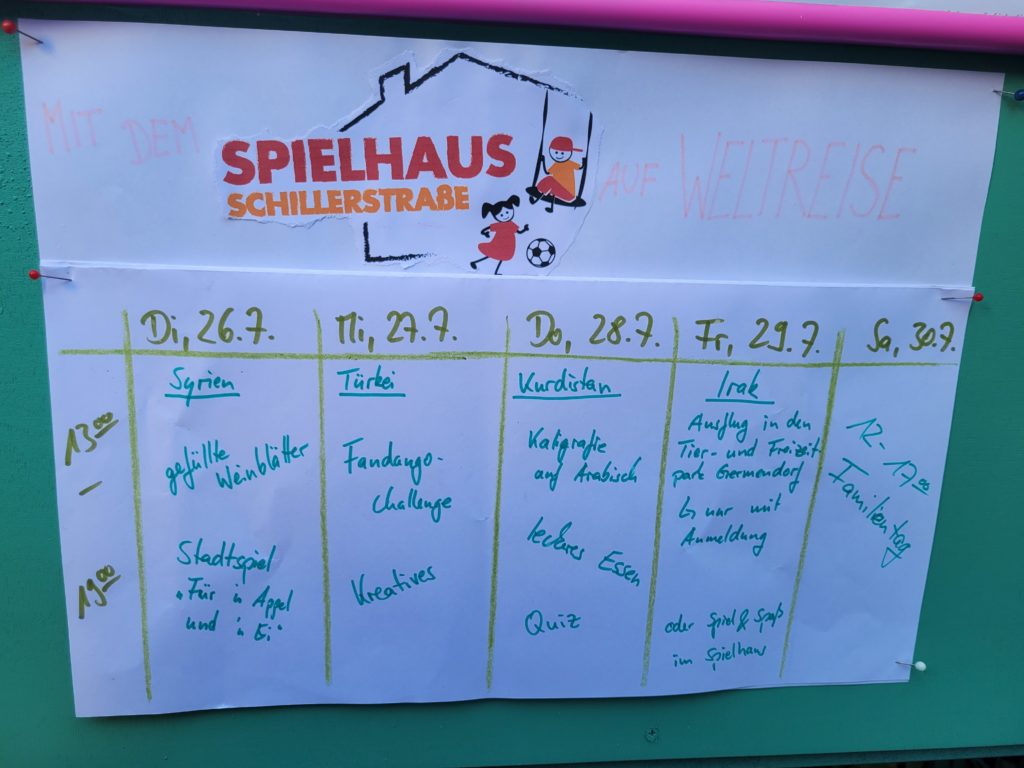 MIT DEM
SPIELHAUS
SCHILLERSTRAßE
AUF WELTREISE
Di, 26.7.
Mi, 27.7.
Do, 28.7.
Fr, 29.7.
Sa, 30.7.
13.00
–
19.00
Syrien
gefüllte
Weinblätter
Stadtspiel
„Für 'n Appel
und 'n Ei"
Türkei
Fandango-
Challenge
Kreatives
Kurdistan
Kaligrafie
auf Arabisch
leckeres Essen
Quiz
Irak
Ausflug in den
Tier- und Freizeit
park Germendorf
↳ nur mit
Anmeldung
oder Spiel & Spaß
im Spielhaus
12 - 17.00
Familientag